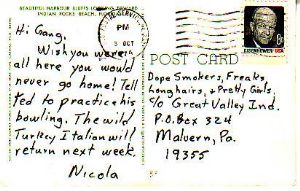 BEAUTIFUL HARBOUR BLUFFS
INDIAN ROCKS BEACH,
Hi Gang,
Wish you were
all here you would
never go home! Tell
Ted to practice his
bowling. The wild
Turkey Italian will
return next week.
Nicola
PM
OCT
EISENHOWER USA
POST CARD
Dope Smokers, Freaks,
Longhairs, & Pretty Girls.
c/o Great Valley Ind.
P.O. Box 324
Malvern, Pa.
19355